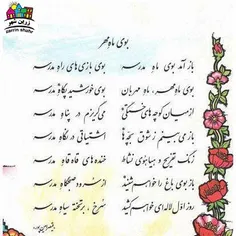 زرین شهر
zarrin shahr
بوی ماه مهر
باز آمد بوی ماه مدرسه
بوی بازی‌های راه مدرسه
بوی ماه مهر، ماه مهربان
بوی خورشید پگاه مدرسه
از میان کوچه‌های خستگی
می‌گریزم در پناه مدرسه
باز می‌بینم ز شوق بچه‌ها
اشتیاقی در نگاه مدرسه
زنگ تفریح و هیاهوی نشاط
خنده‌های قاه قاه مدرسه
باز بوی باغ را خواهم شنید
از سرود صبحگاه مدرسه
روز اول لاله‌ای خواهم کشید
سرخ، بر تخته سیاه مدرسه